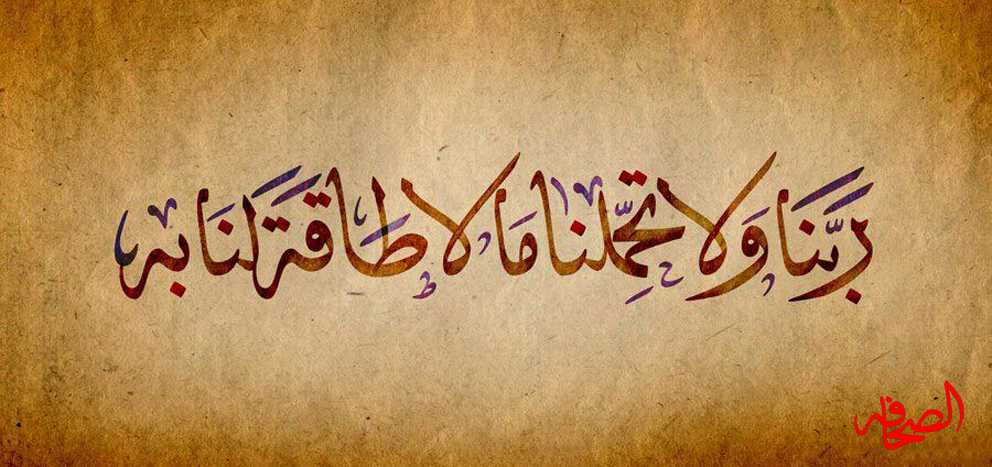 ربَّنَا وَلا تحمِّلنا مَا لا طَاقةَ لنَا به
الصحافه